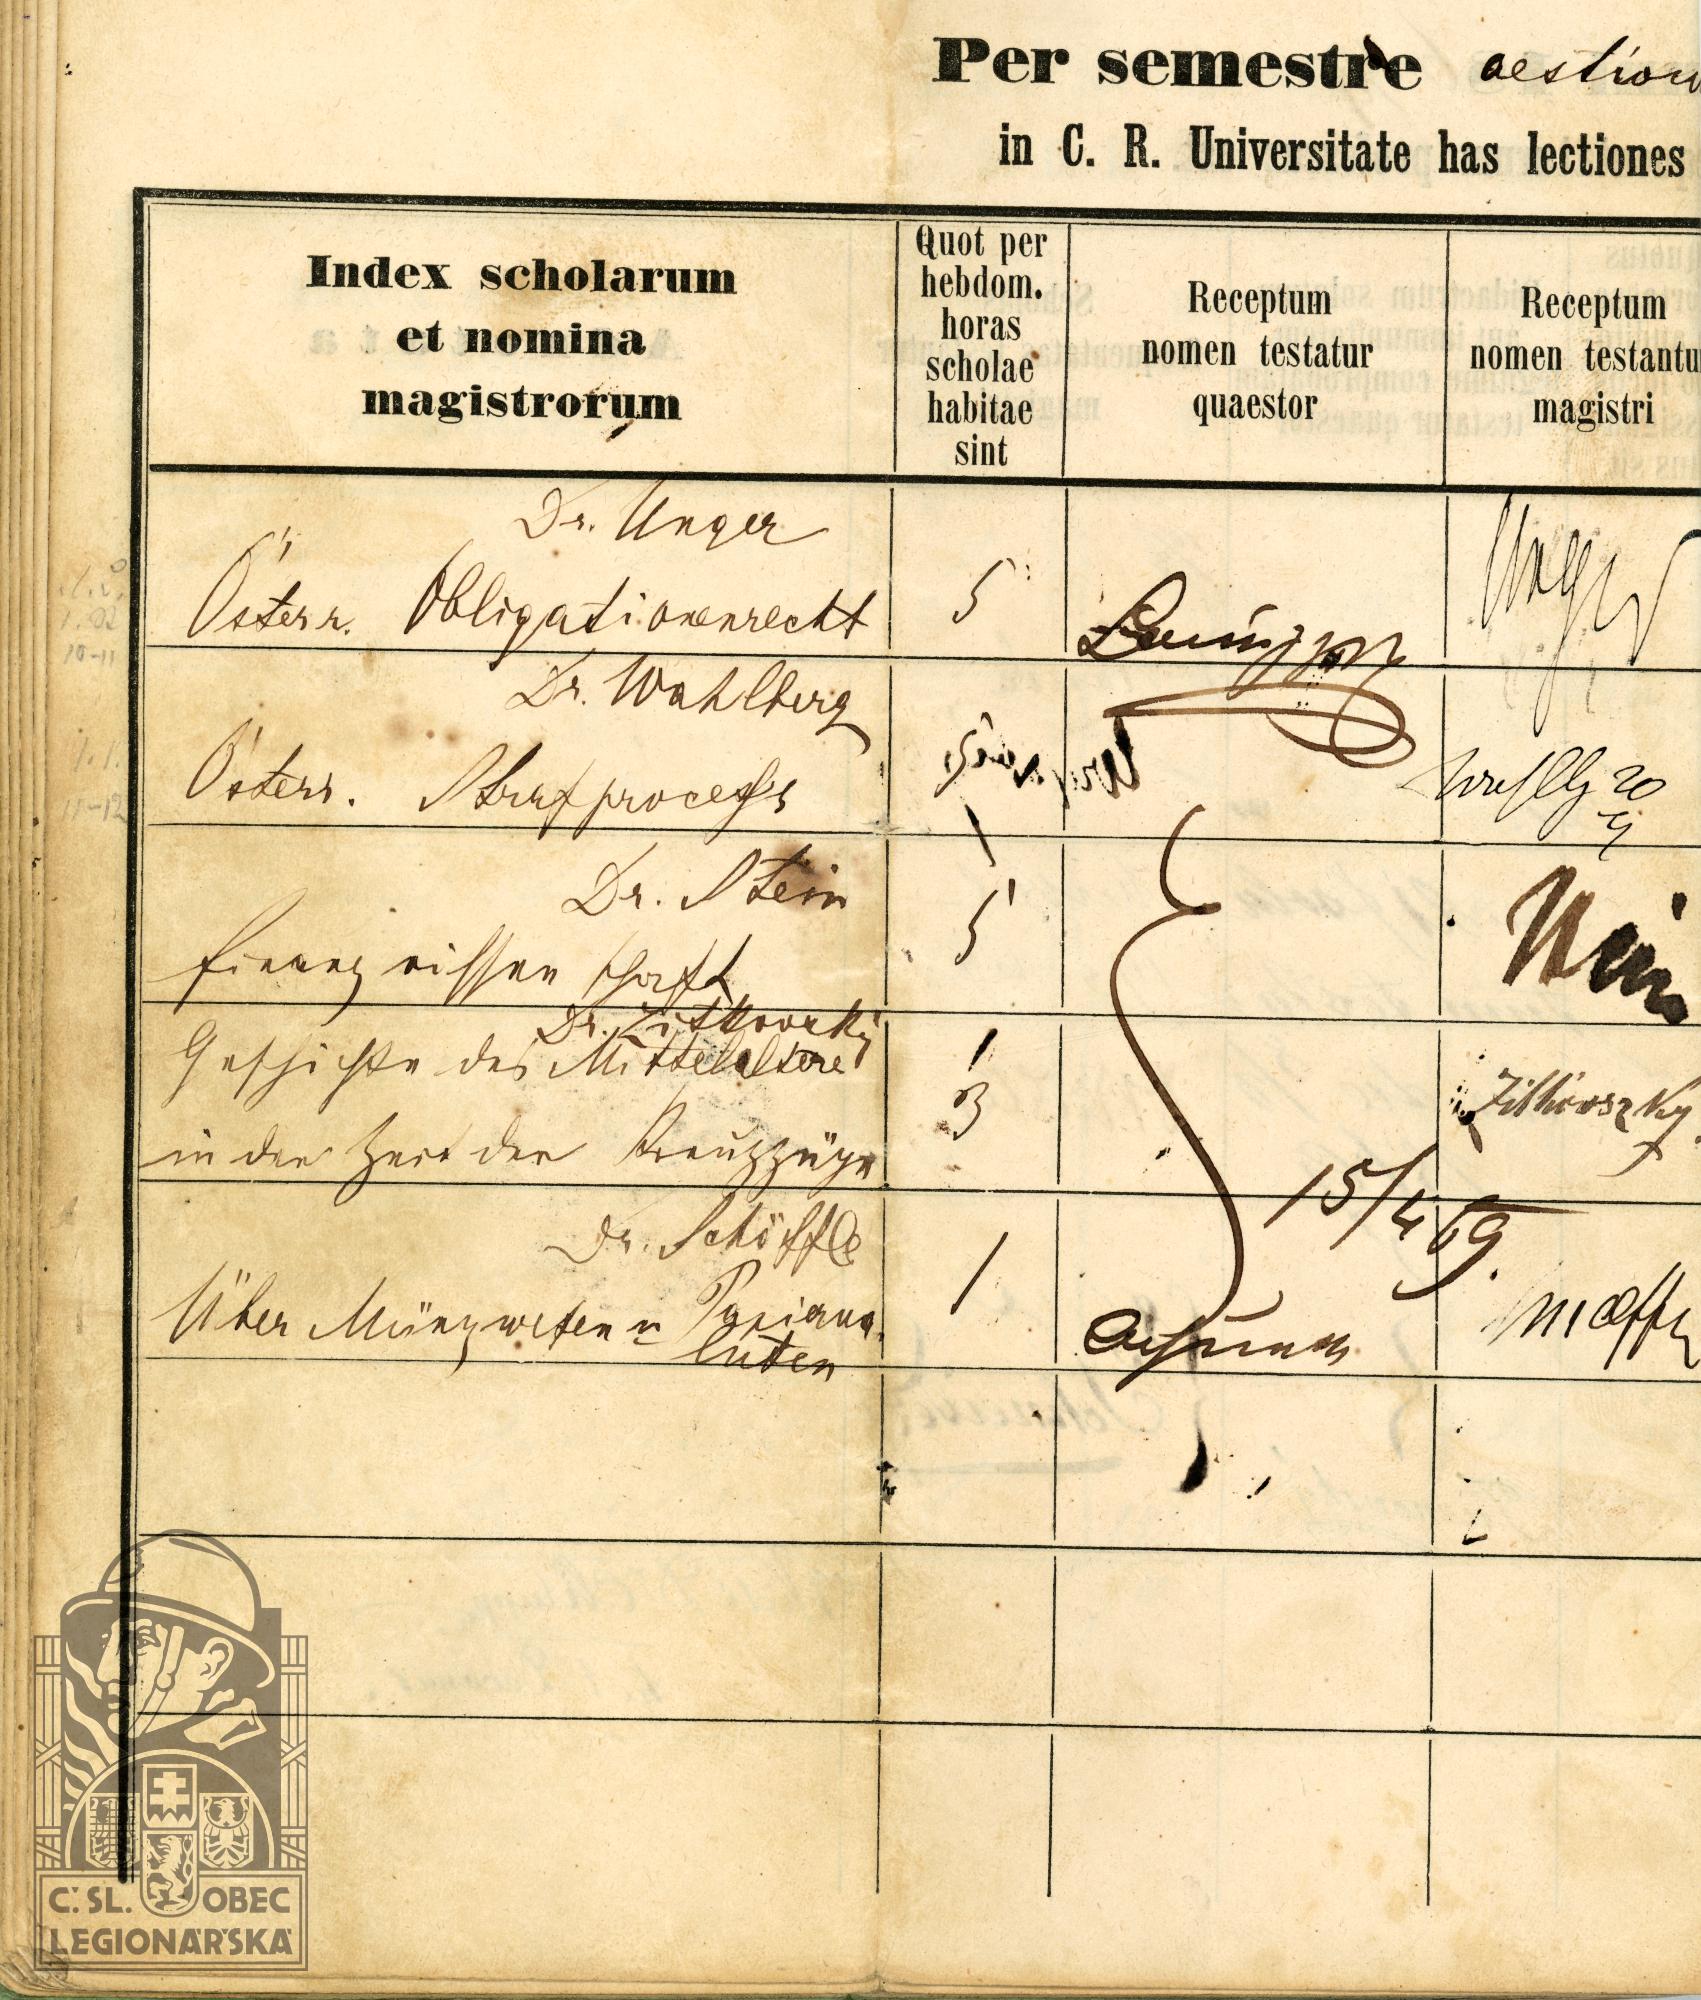 Per semestre aestiv
in C. R. Universitate has lectiones
Index scholarum
et nomina
magistrorum
Quot per
hebdom.
horas
scholae
habitae
sint
Receptum
nomen testatur
quaestor
Receptum
nomen testantu
magistri
Dr. Unger
Österr. Obligationenrecht
5
Unger
Dr. Wahlberg
Österr. Strafprocess
20
Dr. Stein
Finanzwissenschaft
5
Stein
Dr. Zitkovszky
Geschichte des Mittelalters
in der Zeit der Kreuzzüge
3
Zitkovszky
15/4 69.
Dr. Schäffle
Über Münzwesen u Papierva-
luten
1
C. SL. OBEC
LEGIONÁŘSKÁ